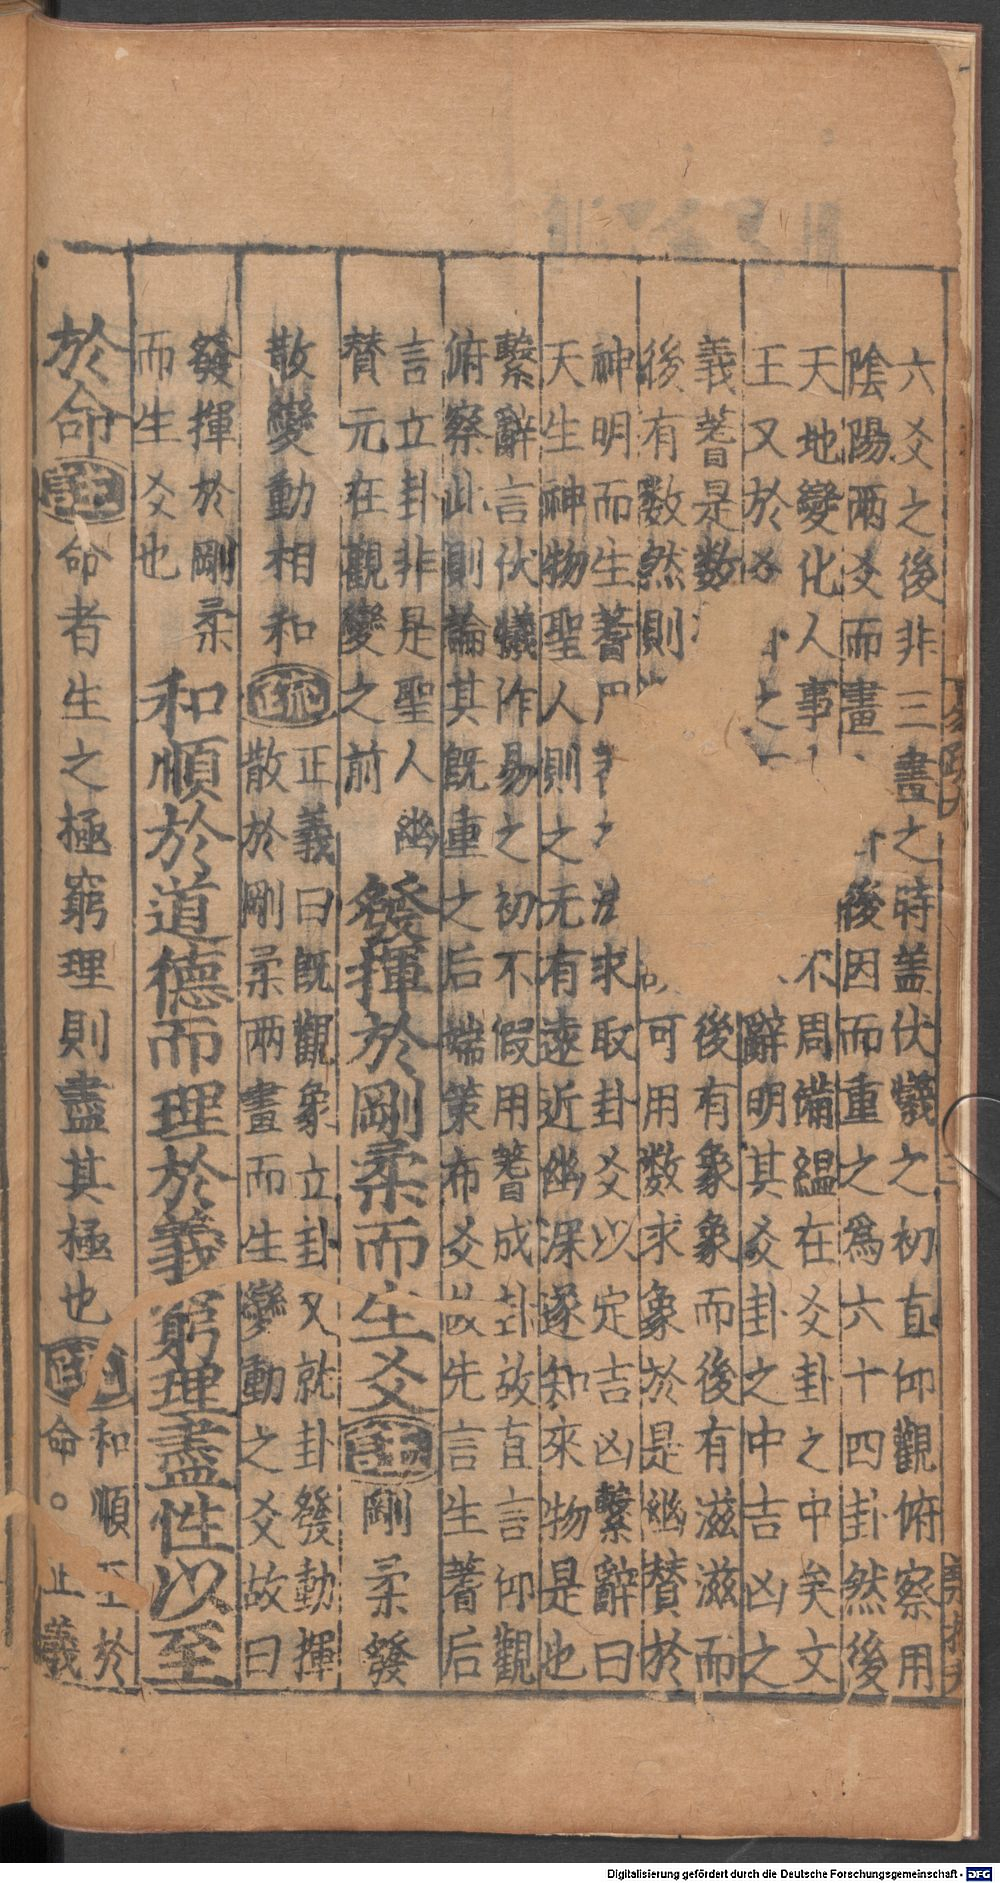 六爻之後非三畫之時盖伏犧之初直仰觀俯察用
陰陽兩爻而畫後因而重之為六十四卦然後
天地變化人事不周備緼在爻卦之中矣文
王又於之辭明其爻卦之中吉凶之
義蓍是数後有象象而後有滋滋而
後有数然則可用数求象於是幽賛於
神明而生蓍求取卦爻以定吉凶繫辭曰
天生神物聖人則之无有遠近幽深遂知來物是也
繫辭言伏犧作易之初不假用蓍成卦故直言仰觀
俯察此則論其既重之后端策布爻故先言生蓍后
言立卦非是聖人幽
賛元在觀變之前
發揮於剛柔而生爻
註
剛柔發
散變動相和
疏
正義曰既觀象立卦又就卦發動揮
散於剛柔兩畫而生變動之爻故曰
發揮於剛柔
而生爻也
和順於道德而理於義窮理盡性以至
於命
註
命者生之極窮理則盡其極也
疏
和順至於
命。正義
Digitalisierung gefördert durch die Deutsche Forschungsgemeinschaft - DFG